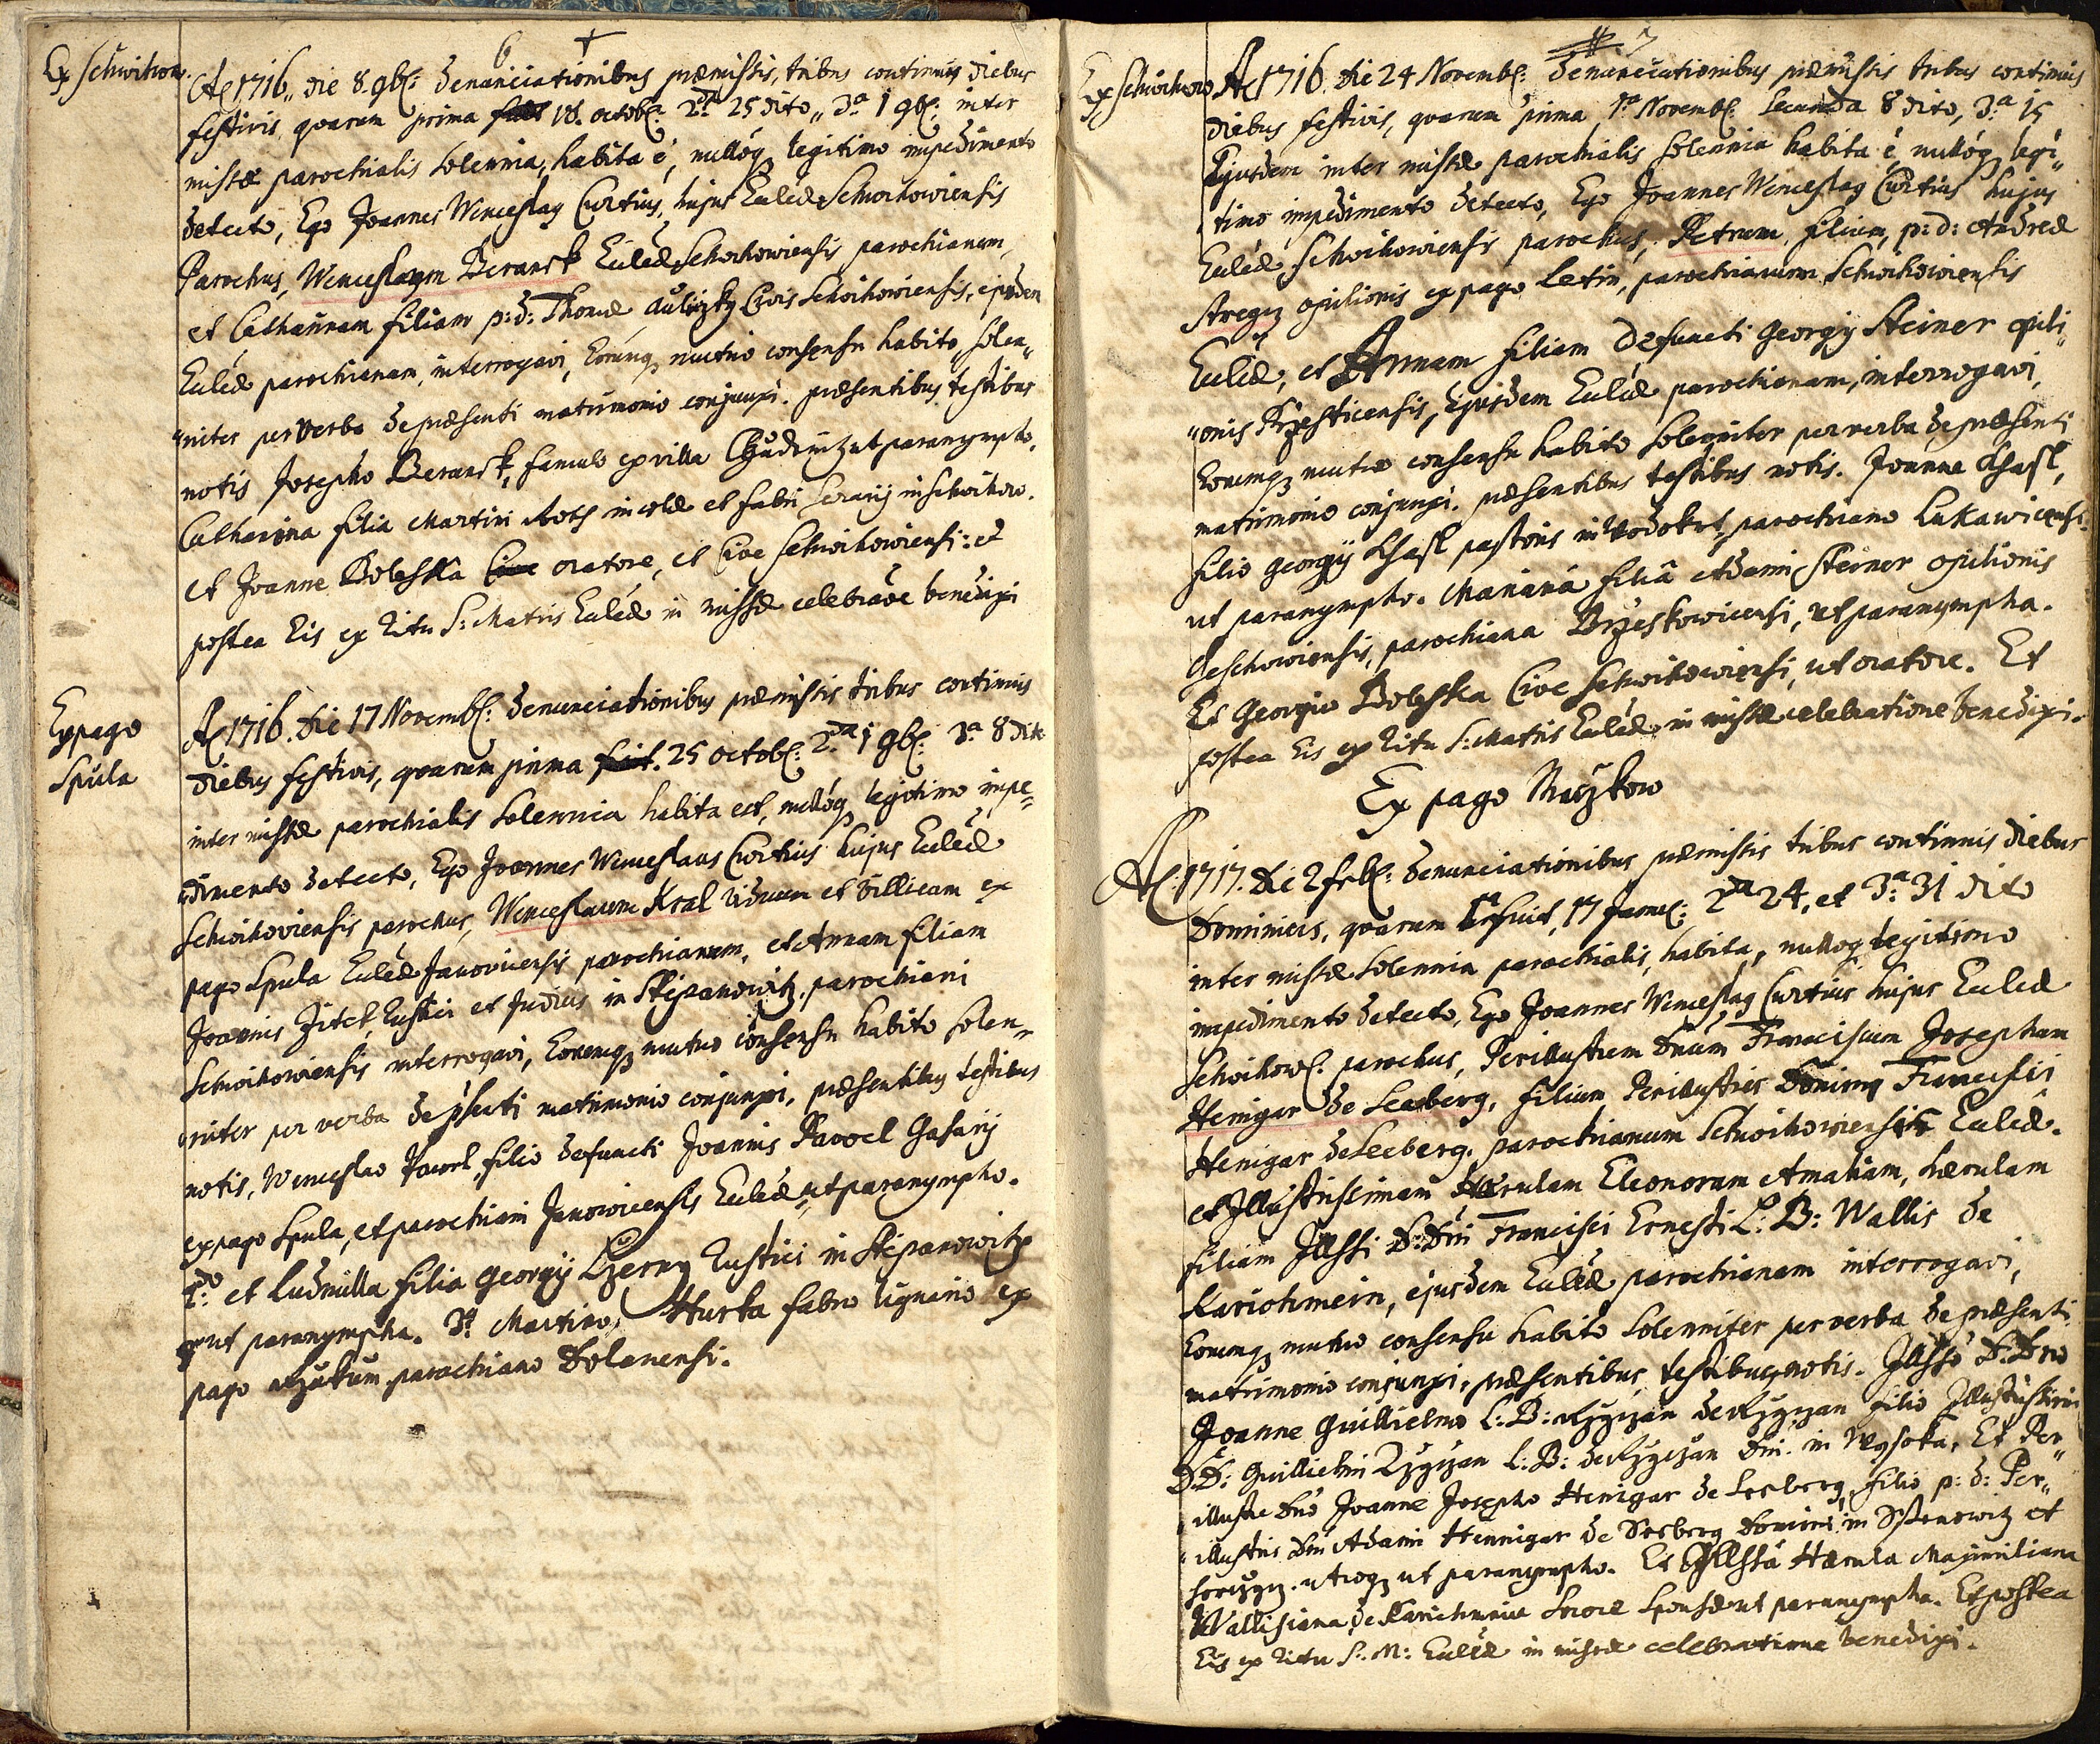 6
Ex Schwihow.
Ao 1716, die 8. 9br: denunciationibus præmissis, tribus continuis diebus
festivis, quarum prima 18. octobr: 2da 25 dito, 3a 1 9br: inter
missæ parochialis solennia, habita è, nulloq legitimo impedimento
detecto, Ego Joannes Wenceslaq Curtius, hujus Eccled Schwihowiensis
Parochus, Wenceslaum Beranek Eccled Schwihowiensis parochianum,
et Catharinam filiam p: d: Thomæ Civis Schwihowiensis, ejusdem
Eccled parochianam, interrogavi, Eorumq mutuo consensu habito, solen„
„niter per verba de præsenti matrimonio conjunxi. præsentibus testibus
notis Josepho Beranek, famulo ex villa ut paranympho.
Catharina filia Martini Roth incolæ et fabri serarij in Schwihow.
et Joanne Boleska Cive oratore, et Cive Schwihowiensi: et
postea Eis ex Ritu S: Matris Eccled in missæ celebraõe benedixi
Ex pago
Spula
Ao 1716. die 17 Novembr: denunciationibus præmissis tribus continuis
diebus festivis, quarum prima fuit. 25 octobr: 2da 1 9br: 3a 8 dito
inter missæ parochialis solennia habita est, nulloq legitimo impe=
„dimento detecto, Ego Joannes Wenceslaus Curtius hujus Eccled
Schwihoviensis parochus, Wenceslaum Kral viduum et villicum ex
pago Spula Eccled Janovicensis parochianum, et Annam filiam
Joannis Jitek, Rustici et Judicis in Stiepanowitz, parochiani
Schwihowiensis interrogavi, Eorumq mutuo consensu habito solen„
„niter per verba de pñsenti matrimonio conjunxi, præsentibus testibus
notis, Wenceslao Pawel, filio defuncti Joannis Pawel
ex pago Spula, et parochiani Janowicensis Eccled, ut paranympho.
2do et Ludmilla filia Georgij Czerny Rustici in Stiepanowitz
ut paranympha. 3o Martino Hurka fabro lignario ex
pago parochiano Dolanensi.
7
Ex Schwihow
Ao 1716. die 24 Novembr: denunciationibus præmissis tribus continuis
diebus festivis, quarum prima 1a Novembr. secunda 8 dito, 3a 15
Ejusdem inter missæ parochialis solennia habita è, nulloq legi„
„timo impedimento detecto, Ego Joannes Wenceslaq Curtius hujus
Eccled Schwihowiensis parochus, Petrum, filium, p: d: Andreæ
opilionis ex pago Letin, parochianum Schwihowiensis
Eccled, et Annam filiam Defuncti Georgij Steiner opili„
„onis Przesticensis, Ejusdem Eccled parochianam, interrogavi,
Eorumq mutuo consensu habito solenniter per verba de præsenti
matrimonio conjunxi. præsentibus testibus notis. Joanne
filio Georgij pastoris in Wodokrt, parochiano Lukawicensi.
ut paranympho. Mariana filiâ Adami Steiner opilionis
parochiana Brzeskowicensi, ut paranympha.
Et Georgio Boleska Cive Schwihowiensi, ut oratore. Et
postea Eis ex Ritu S: Matris Eccled, in missæ celebratione benedixi.
Ex pago
Ao 1717. die 2 febr: denunciationibus præmissis tribus continuis diebus
Dominicis, quarum 1a fuit, 17 Januar: 2da 24, et 3a 31 dito
inter missæ solennia parochialis, habita, nulloq legitimo
impedimento detecto, Ego Joannes Wenceslaq Curtius hujus Eccled
Schwihow. parochus, Perillustrem Dnum Franciscum Josephum
Henigar de Seeberg, filium Perillustris Domini Francisci
Henigar de Seeberg, parochianum Schwihowiensis Eccled.
et Illustrissimam Hærulam Eleonoram Amaliam, hærulam
filiam Illssi D: Dni Francisci Ernesti L: B: Wallis de
Karichmein, ejusdem Eccled parochianam interrogavi,
Eorumq mutuo consensu habito solenniter per verba de præsenti
matrimonio conjunxi, præsentibus testibus notis. Illsso D: Dno
Joanne Guilielmo L: B: Rzyczan de Rzyczan filio Illustrissimi
D: D: Guilielmi Rzyczan L: B: de Rzyczan Dni in Wysoka, Et Per„
„illustre Dno Joanne Josepho Henigar de Seeberg, filio p: d: Per„
„illustris Dni Adami Hennigar de Seeberg Domini in et
utroq ut paranympho. Et Illssa Hærula Maximiliana
Wallisiana de Karichmein sorore sponsæ ut paranympha. Et postea
Eis ex Ritu S: M: Eccled in missæ celebratione benedixi.